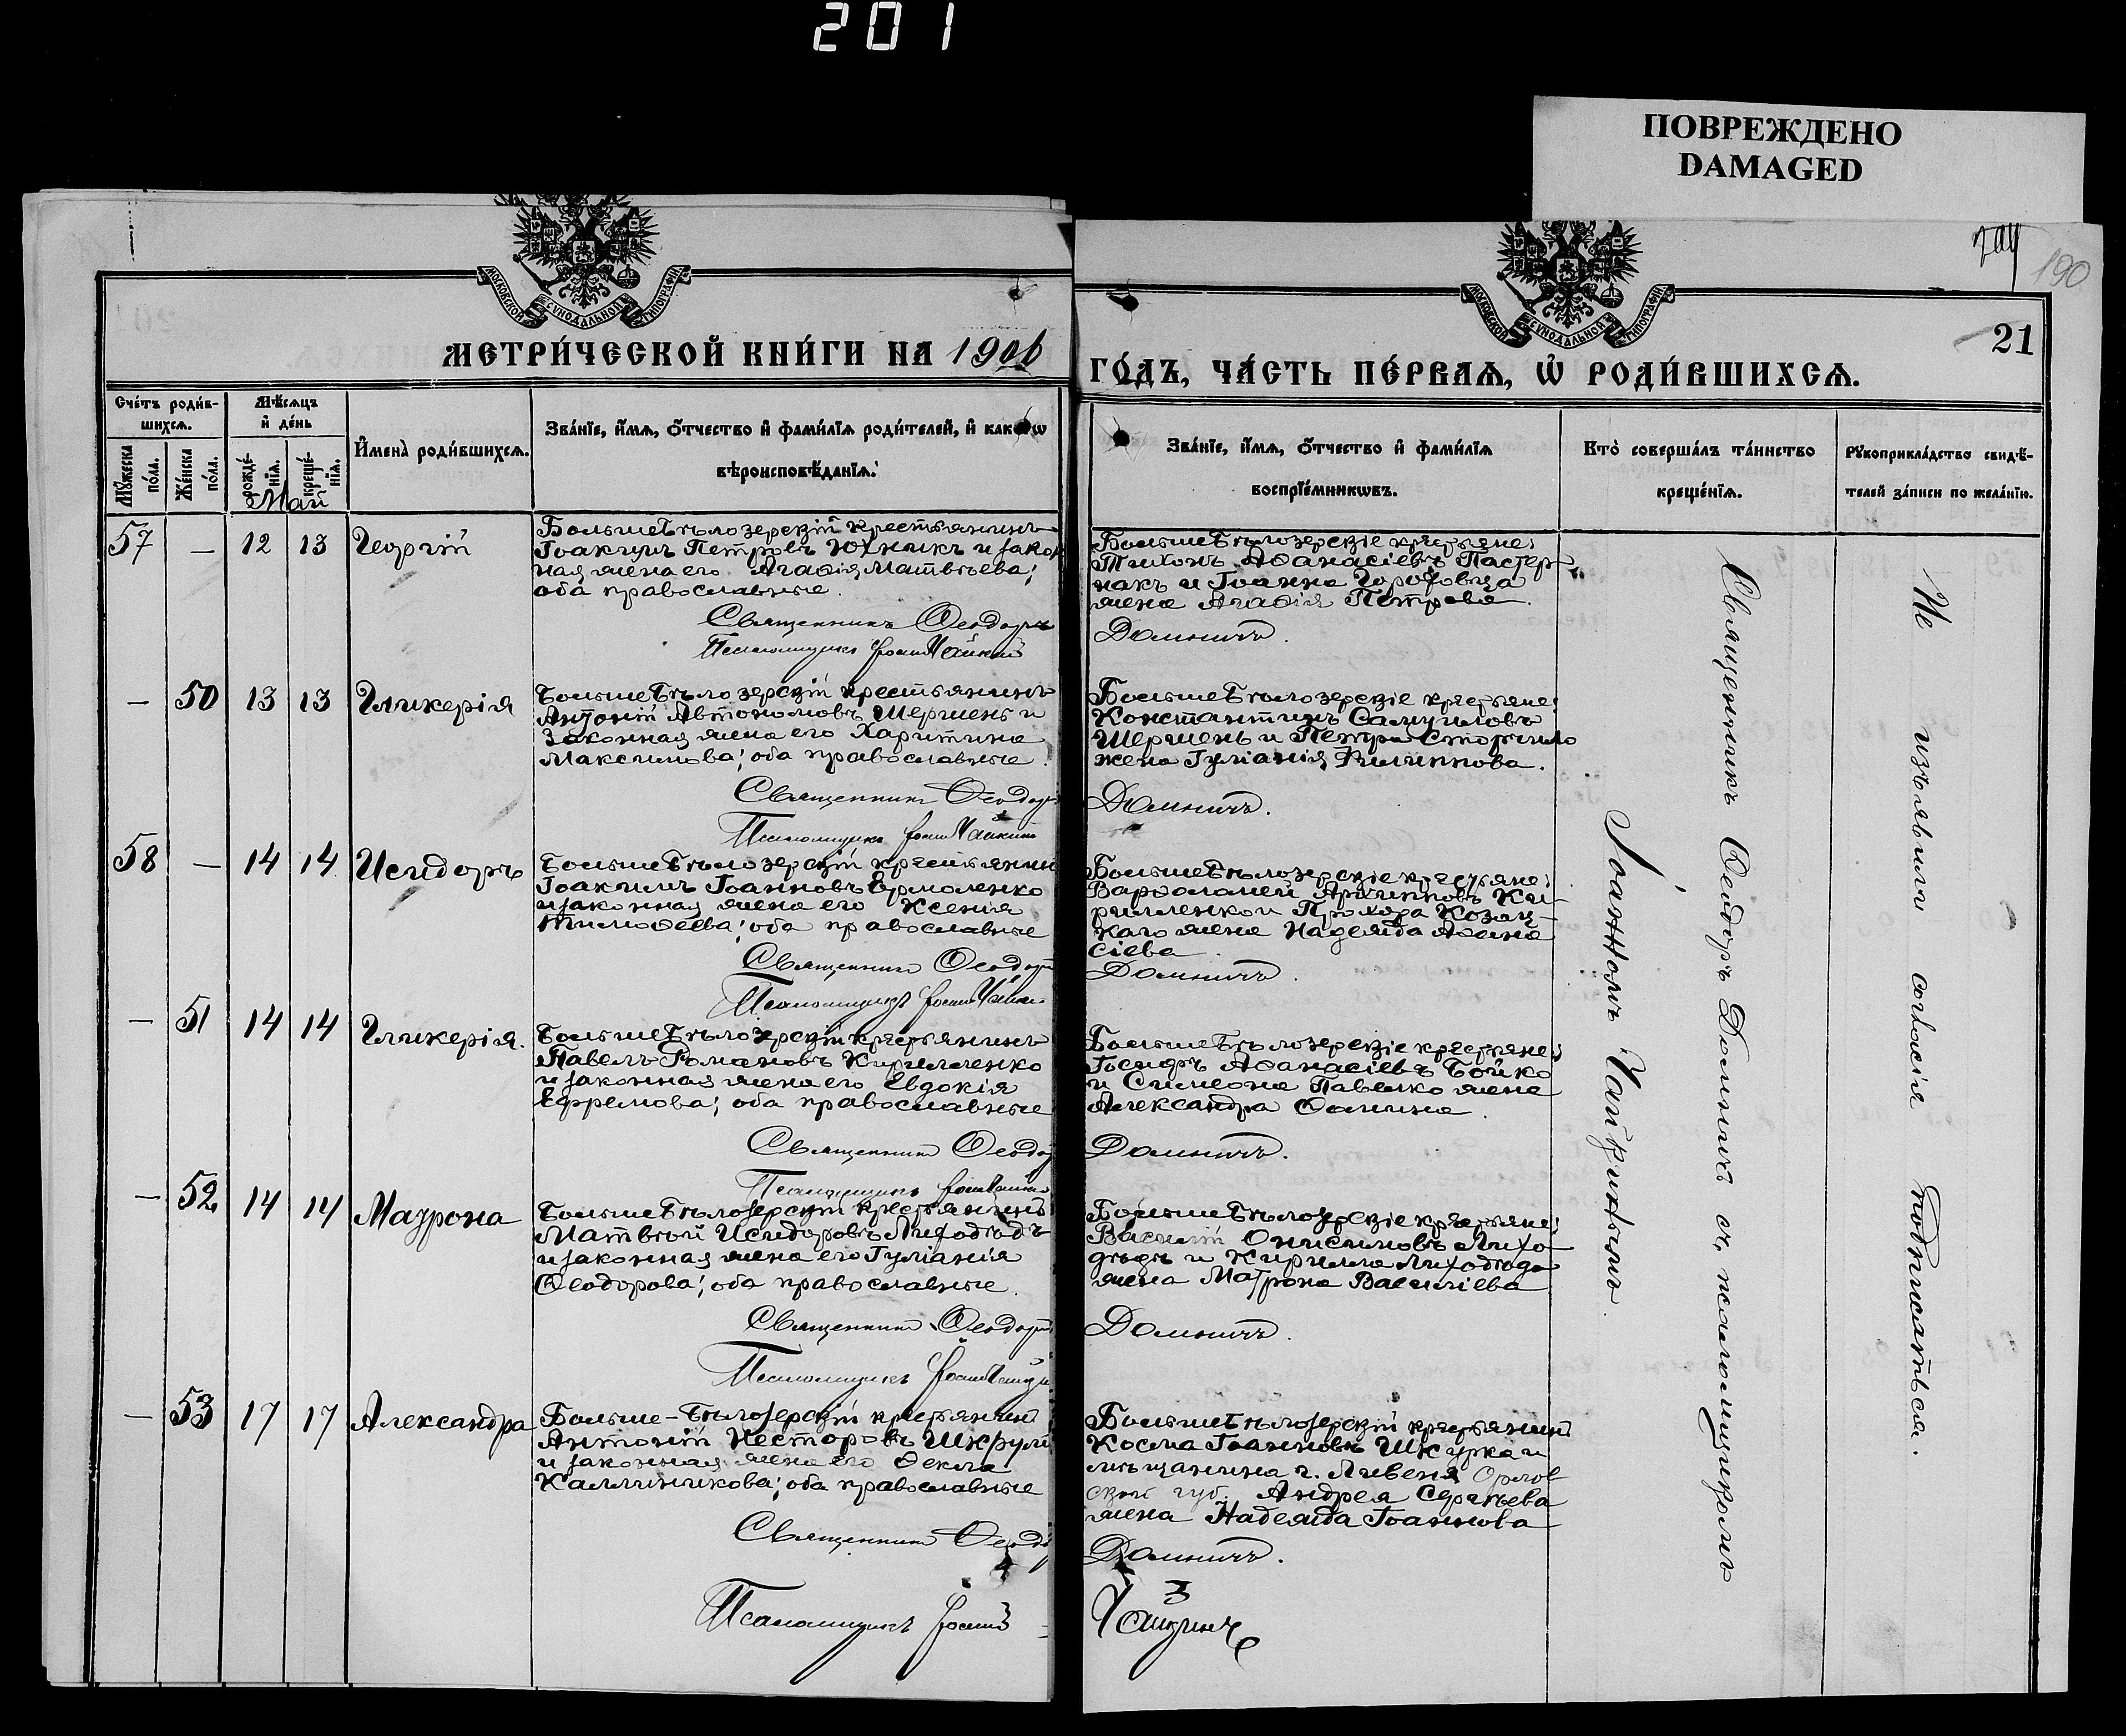 201
ПОВРЕЖДЕНО
DAMAGED
190
МОСКОВСКОЙ СѴНОДАЛЬНОЙ ТИПОГРАФІИ
МОСКОВСКОЙ СѴНОДАЛЬНОЙ ТИПОГРАФІИ
21
МЕТРИ́ЧЕСКОЙ КНИ́ГИ НА 1906
ГО́ДЪ, ЧА́СТЬ ПЕ́РВАѦ, Ѡ҆ РОДИ́ВШИХСѦ.
Сче́тъ роди́в-
шихсѧ.
Мꙋ́жеска по́ла.
Же́нска по́ла.
Мѣ́сѧцъ
и҆ де́нь
рожде́-
нїѧ.
креще́-
нїѧ.
Май
И҆мена̀ роди́вшихсѧ.
Зва́нїе, и҆́мѧ, ѻ҆́тчество и҆ фами́лїѧ роди́телей, и҆ какѡ́гѡ
вѣроисповѣ́данїѧ.
Зва́нїе, и҆́мѧ, ѻ҆́тчество и҆ фами́лїѧ
воспрїе́мникѡвъ.
Кто̀ соверша́лъ та́инство
креще́нїѧ.
Рꙋкоприкла́дство свидѣ́-
телей за́писи по жела́нїю.
57 — 12 13 Георгій
Больше Бѣлозерскій крестьянинъ
Іоакимъ Петровъ Юхникъ и закон
ная жена его Агаѳія Матвѣева;
оба православные.
Священникъ Ѳеодоръ
Псаломщикъ Іоаннъ Чайкинъ
Больше Бѣлозерскіе крестьяне:
Тихонъ Аѳанасіевъ Пастер-
накъ и Іоанна Городовца
жена Агаѳія Петрова.
Домничъ.
— 50 13 13 Гликерія
Больше Бѣлозерскій крестьянинъ
Антоній Автономовъ Шершень и
законная жена его Харитина
Максимова; оба православные.
Священникъ Ѳеодоръ
Псаломщикъ Іоаннъ Чайкинъ
Больше Бѣлозерскіе крестьяне:
Константинъ Самуиловъ
Шершень и Петра Сторчило
жена Іуліанія Филиппова.
Домничъ.
58 — 14 14 Исидоръ
Больше Бѣлозерскій крестьянин
Іоакимъ Іоанновъ Ермоленко
и законная жена его Ксенія
Тимоѳеева; оба православные
Священникъ Ѳеодоръ
Псаломщикъ Іоаннъ Чайкин
Больше Бѣлозерскіе крестьяне:
Варѳоломей Архиповъ Ки-
рилленко и Прохора Козац-
каго жена Надежда Аѳана
сіева.
Домничъ.
— 51 14 14 Гликерія.
Больше Бѣлозерскій крестьянинъ
Павелъ Романовъ Кирилленко
и законная жена его Евдокія
Ефремова; оба православные
Священникъ Ѳеодор
Псаломщикъ Іоаннъ Чайкин
Больше Бѣлозерскіе крестьяне:
Іосифъ Аѳанасіевъ Бойко
и Симеона Павленко жена
Александра Ѳомина.
Домничъ.
— 52 14 14 Маѳрона
Больше Бѣлозерскій крестьянинъ
Матвѣй Исидоровъ Лиходѣдъ
и законная жена его Іуліанія
Ѳеодорова; оба православные.
Священникъ Ѳеодоръ
Псаломщикъ Іоаннъ Чайки
Больше Бѣлозерскіе крестьяне:
Василій Онисимовъ Лихо-
дѣдъ и Кирилла Лиходѣда
жена Матрона Василіева
Домничъ.
— 53 17 17 Александра
Больше-Бѣлозерскій крестьянин
Антоній Несторовъ Шкрум
и законная жена его Ѳекла
Каллиникова; оба православные
Священникъ Ѳеодо
Псаломщикъ Іоаннъ
Больше Бѣлозерскій крестьянин
Косма Іоанновъ Шкурка и
мѣщанина г. Ливенъ Орлов
ской губ. Андрея Сергѣева
жена Надежда Іоаннова
Домничъ.
Чайкинъ
Священникъ Ѳеодоръ Домничъ съ псаломщикомъ
Іоанномъ Чайкинымъ.
Не изъявили согласія подписаться.